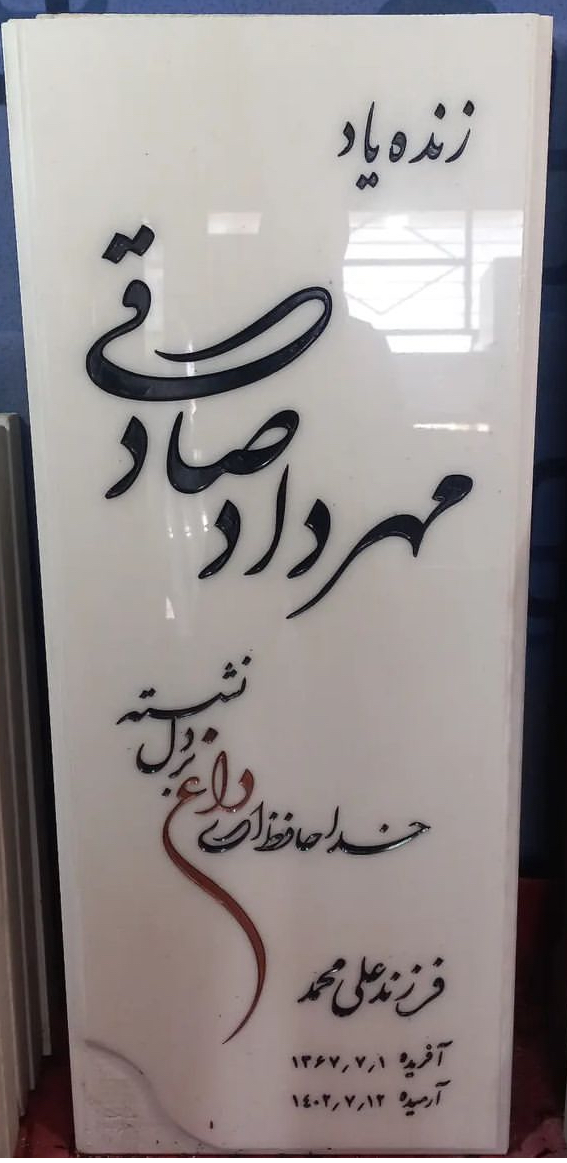 زنده یاد
مهرداد صادقی
خداحافظ ای داغ بر دل نشسته
فرزند علی محمد
آفریده ۱۳۶۷٫۷٫۱
آرمیده ۱۴۰۲٫۷٫۱۲